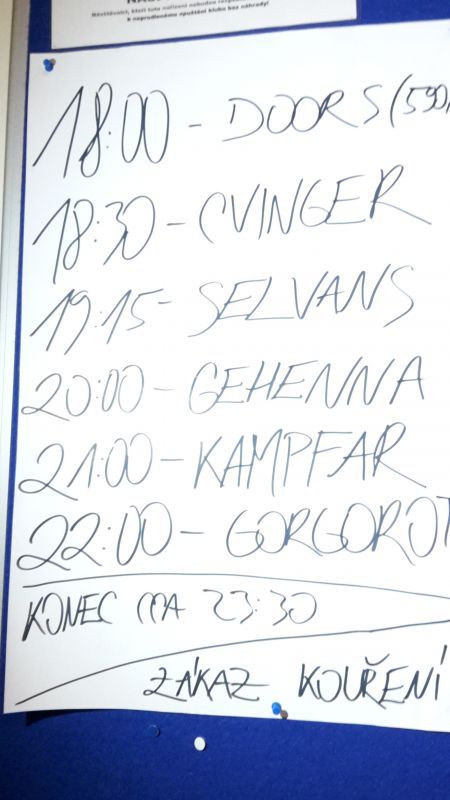 Návštěvníci, kteří toto nařízení nebudou
k neprodlenému opuštění klubu bez náhrady!
18:00 - DOORS (590,
18:30 - CVINGER
19:15 - SELVANS
20:00 - GEHENNA
21:00 - KAMPFAR
22:00 - GORGOROT
KONEC CCA 23:30
ZÁKAZ KOUŘENÍ